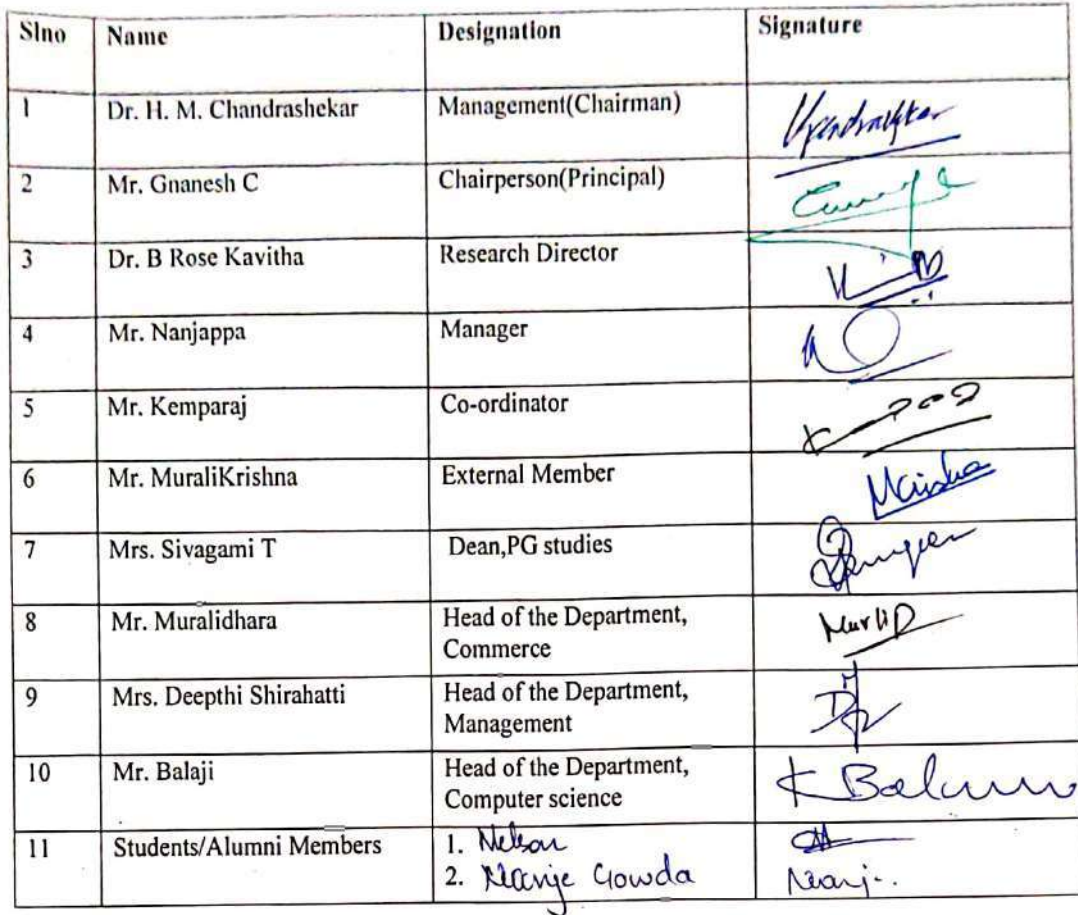 Slno Name Designation Signature
1 Dr. H. M. Chandrashekar Management(Chairman)
2 Mr. Gnanesh C Chairperson(Principal)
3 Dr. B Rose Kavitha Research Director
4 Mr. Nanjappa Manager
5 Mr. Kemparaj Co-ordinator
6 Mr. MuraliKrishna External Member
7 Mrs. Sivagami T Dean,PG studies
8 Mr. Muralidhara Head of the Department,
Commerce
9 Mrs. Deepthi Shirahatti Head of the Department,
Management
10 Mr. Balaji Head of the Department,
Computer science
11 Students/Alumni Members 1. Nelson
2. Nanje Gowda